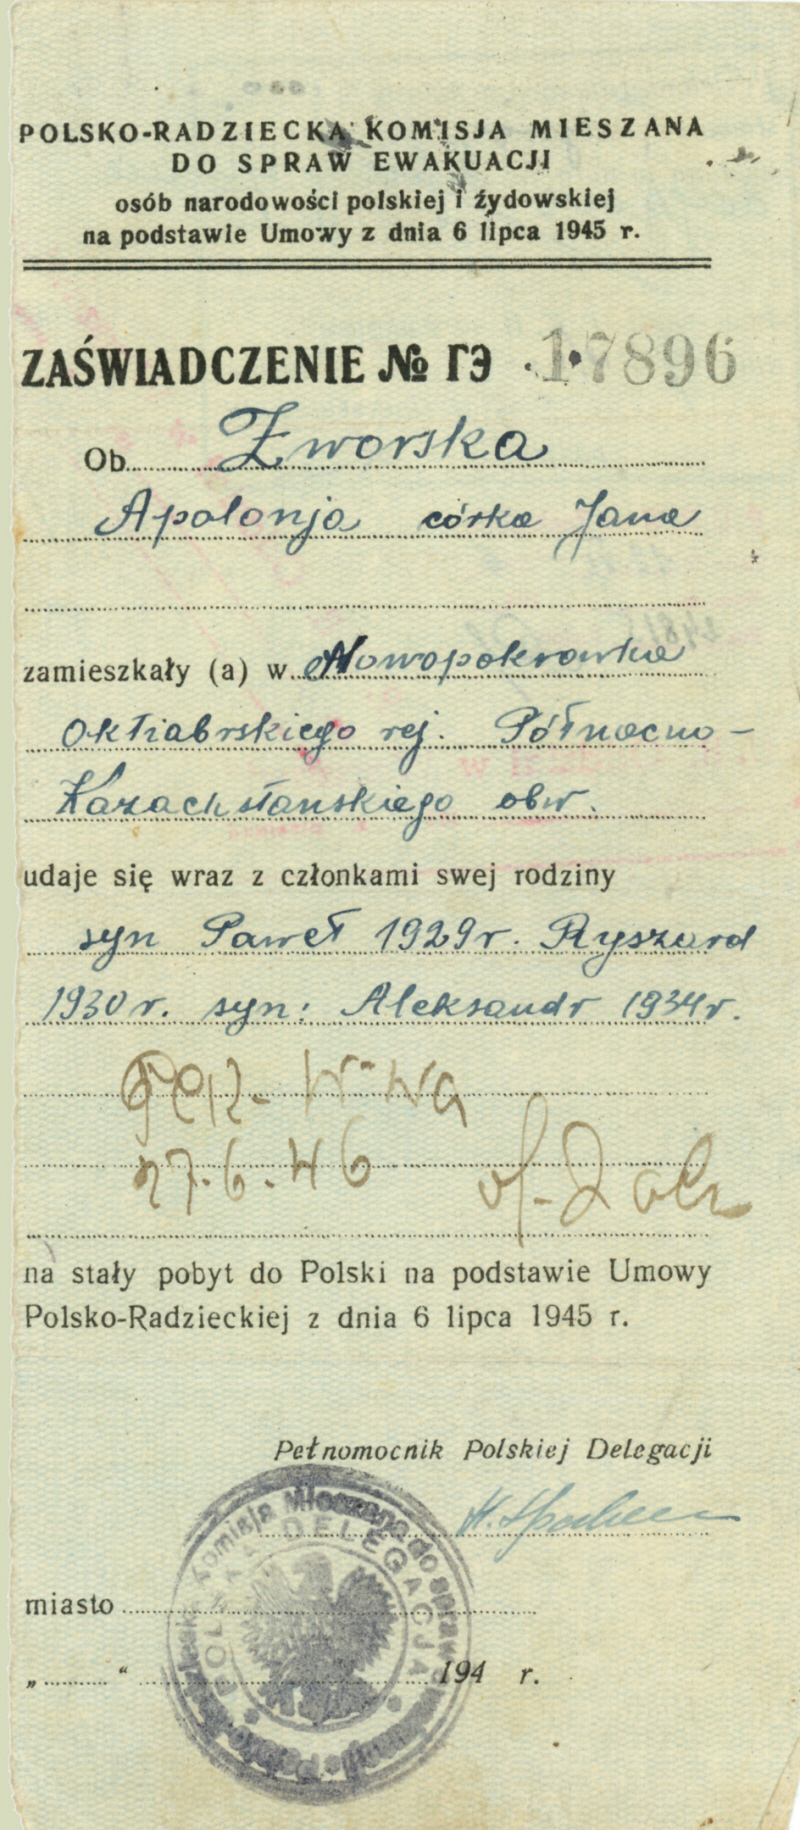 POLSKO-RADZIECKA KOMISJA MIESZANA
DO SPRAW EWAKUACJI
osób narodowości polskiej i żydowskiej
na podstawie Umowy z dnia 6 lipca 1945 r.
ZAŚWIADCZENIE № ГЭ 17896
Ob. Zworska
Apolonja córka Jana
zamieszkały (a) w Nowopokrowka
Oktiabrskiego rej. Północno-
Kazachstanskiego obw.
udaje się wraz z członkami swej rodziny
syn Paweł 1929 r. Ryszard
1930 r. syn: Aleksandr 1934 r.
W-wa
27.6.46
na stały pobyt do Polski na podstawie Umowy
Polsko-Radzieckiej z dnia 6 lipca 1945 r.
Pełnomocnik Polskiej Delegacji
Komisja Mieszana do spraw
DELEGACJA
miasto
„ “ 194 r.